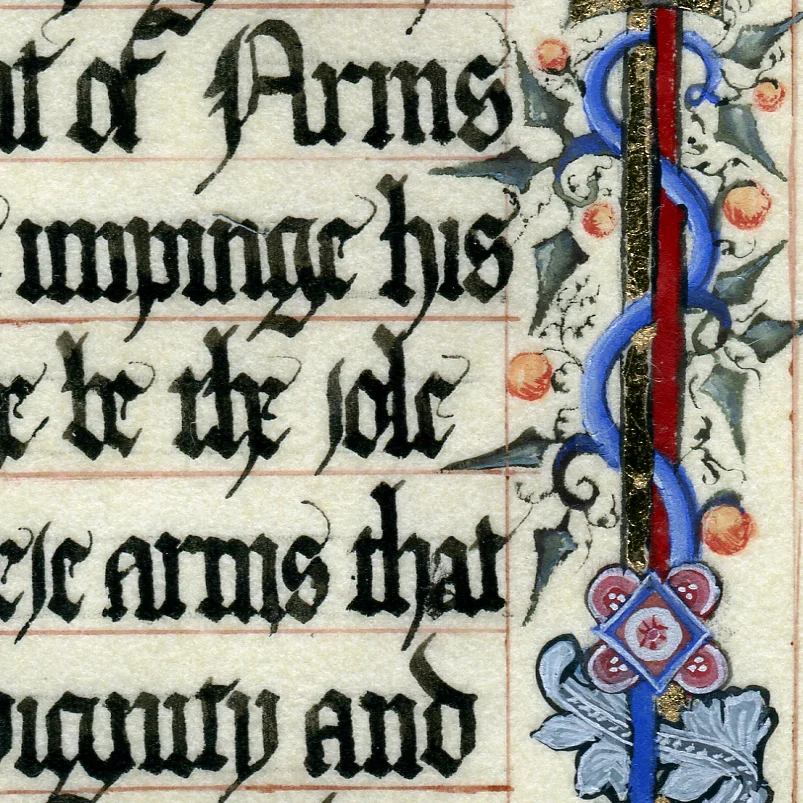 of Arms
impinge his
be the ſole
eſe arms that
dignity and